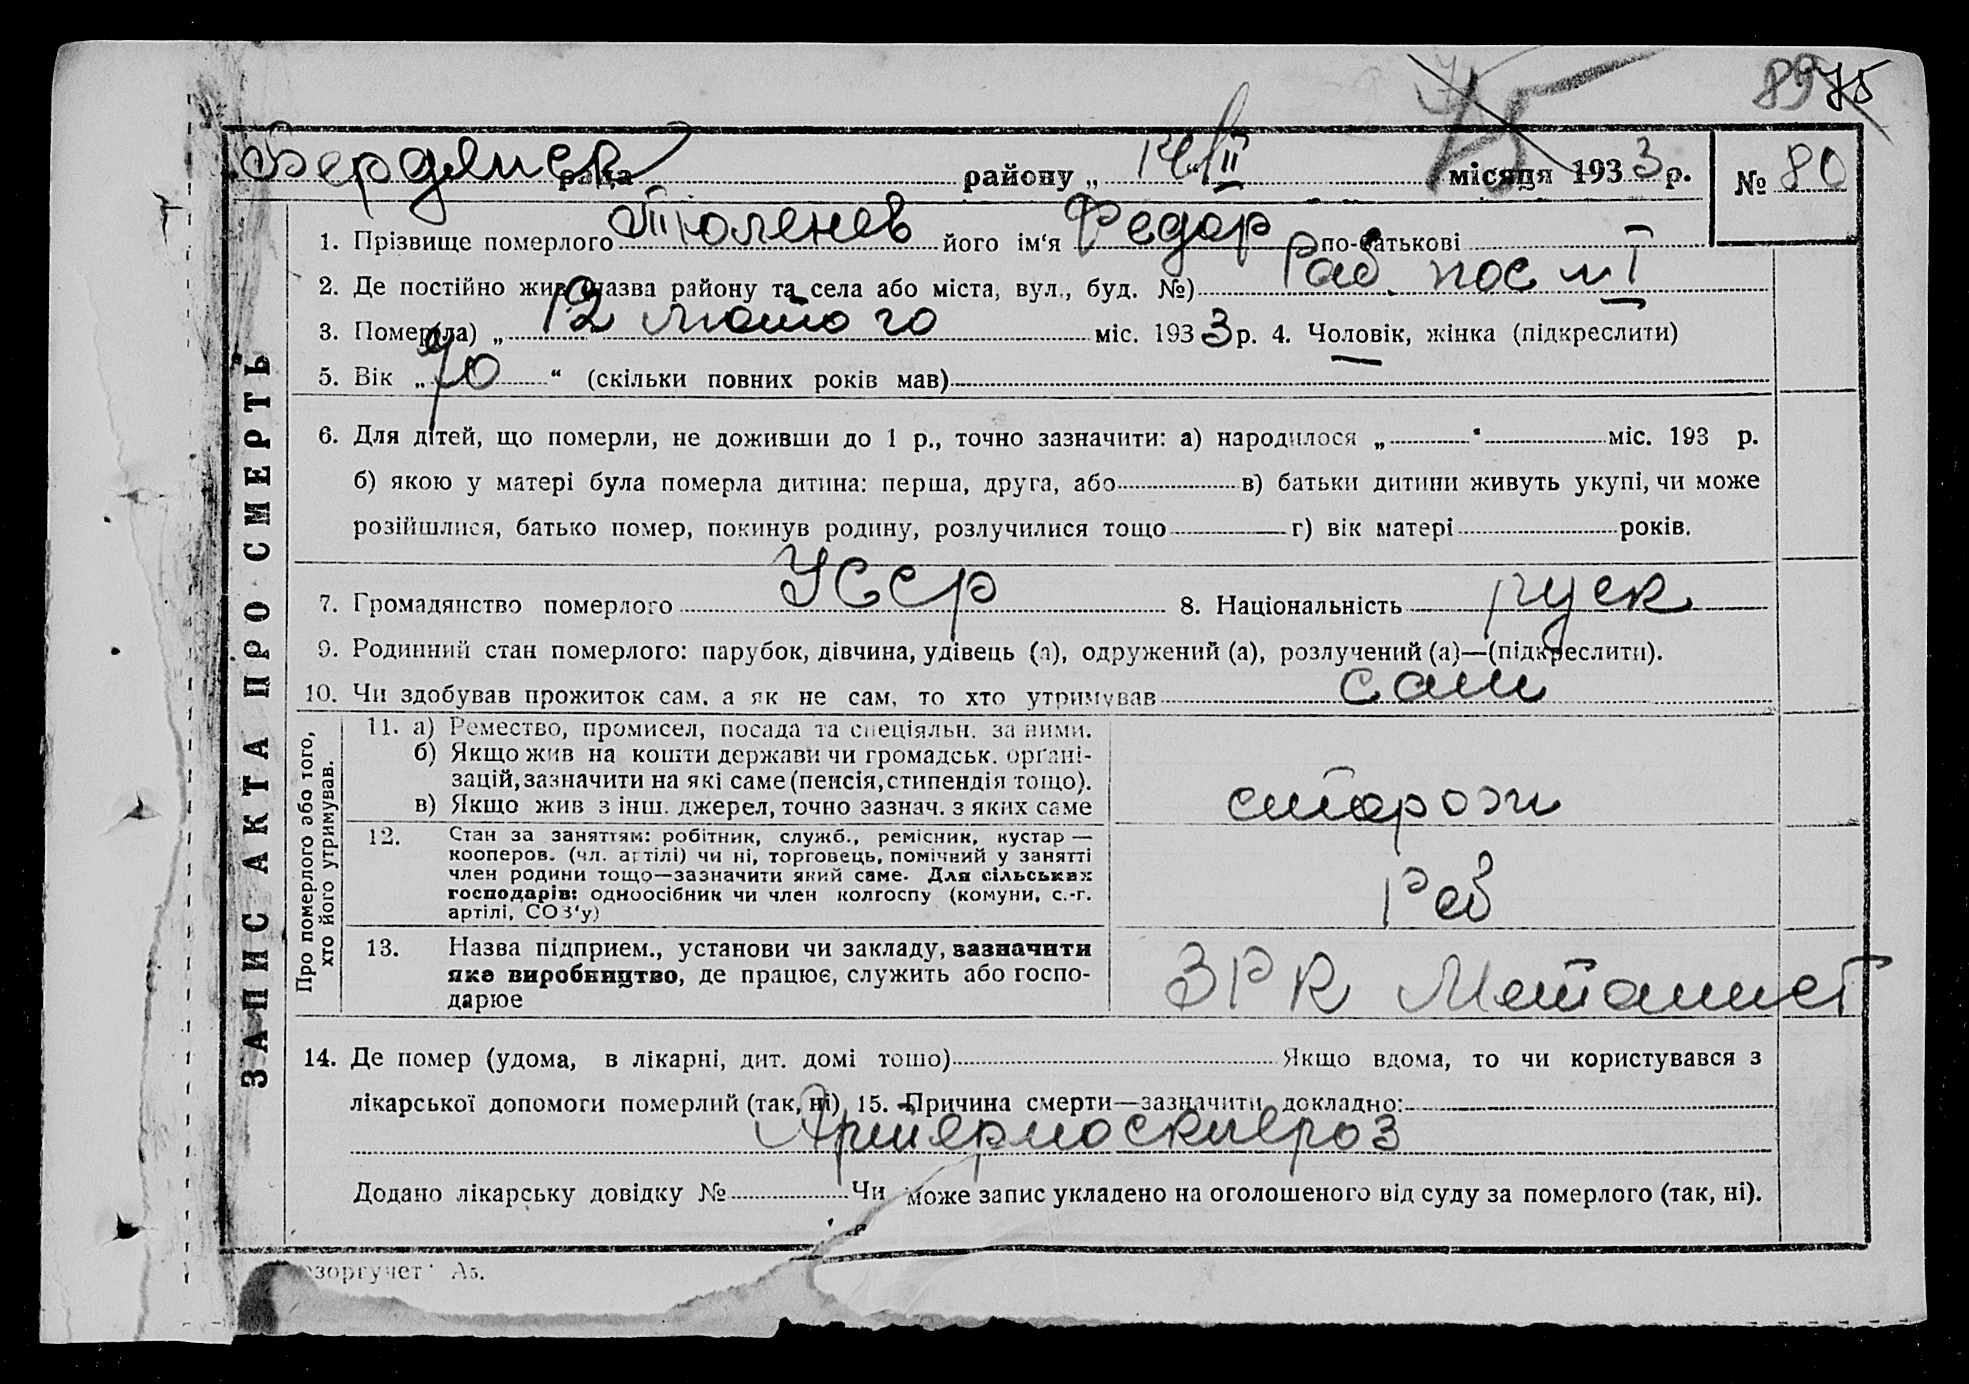 89 75
75
Бердянск рада району „14/II місяця 1933 р. № 80
ЗАПИС АКТА ПРО СМЕРТЬ
1. Прізвище померлого Тюленев його ім'я Федор по-батькові
2. Де постійно жив (назва району та села або міста, вул., буд. №) Раб. пос № I
3. Помер(ла) „12 лютого міс. 1933 р. 4. Чоловік, жінка (підкреслити)
5. Вік „70“ (скільки повних років мав)
6. Для дітей, що померли, не доживши до 1 р., точно зазначити: а) народилося „ “ міс. 193 р.
б) якою у матері була померла дитина: перша, друга, або в) батьки дитини живуть укупі, чи може
розійшлися, батько помер, покинув родину, розлучилися тощо г) вік матері років.
7. Громадянство померлого УССР 8. Національність руск
9. Родинний стан померлого: парубок, дівчина, удівець (а), одружений (а), розлучений (а)—(підкреслити).
10. Чи здобував прожиток сам, а як не сам, то хто утримував сам
Про померлого або того,
хто його утримував.
11. а) Ремество, промисел, посада та спеціяльн. за ними.
б) Якщо жив на кошти держави чи громадськ. органі-
зацій, зазначити на які саме (пенсія, стипендія тощо).
в) Якщо жив з інш. джерел, точно зазнач. з яких саме
сторож
12. Стан за заняттям: робітник, служб., ремісник, кустар —
кооперов. (чл. артілі) чи ні, торговець, помічний у занятті
член родини тощо—зазначити який саме. Для сільських
господарів: одноосібник чи член колгоспу (комуни, с.-г.
артілі, СОЗ'у)
Раб
13. Назва підприєм., установи чи закладу, зазначити
яке виробництво, де працює, служить або госпо-
дарює
ЗРК Металист
14. Де помер (удома, в лікарні, дит. домі тощо) Якщо вдома, то чи користувався з
лікарської допомоги померлий (так, ні) 15. Причина смерти—зазначити докладно:
Артериосклероз
Додано лікарську довідку № Чи може запис укладено на оголошеного від суду за померлого (так, ні).
А5.